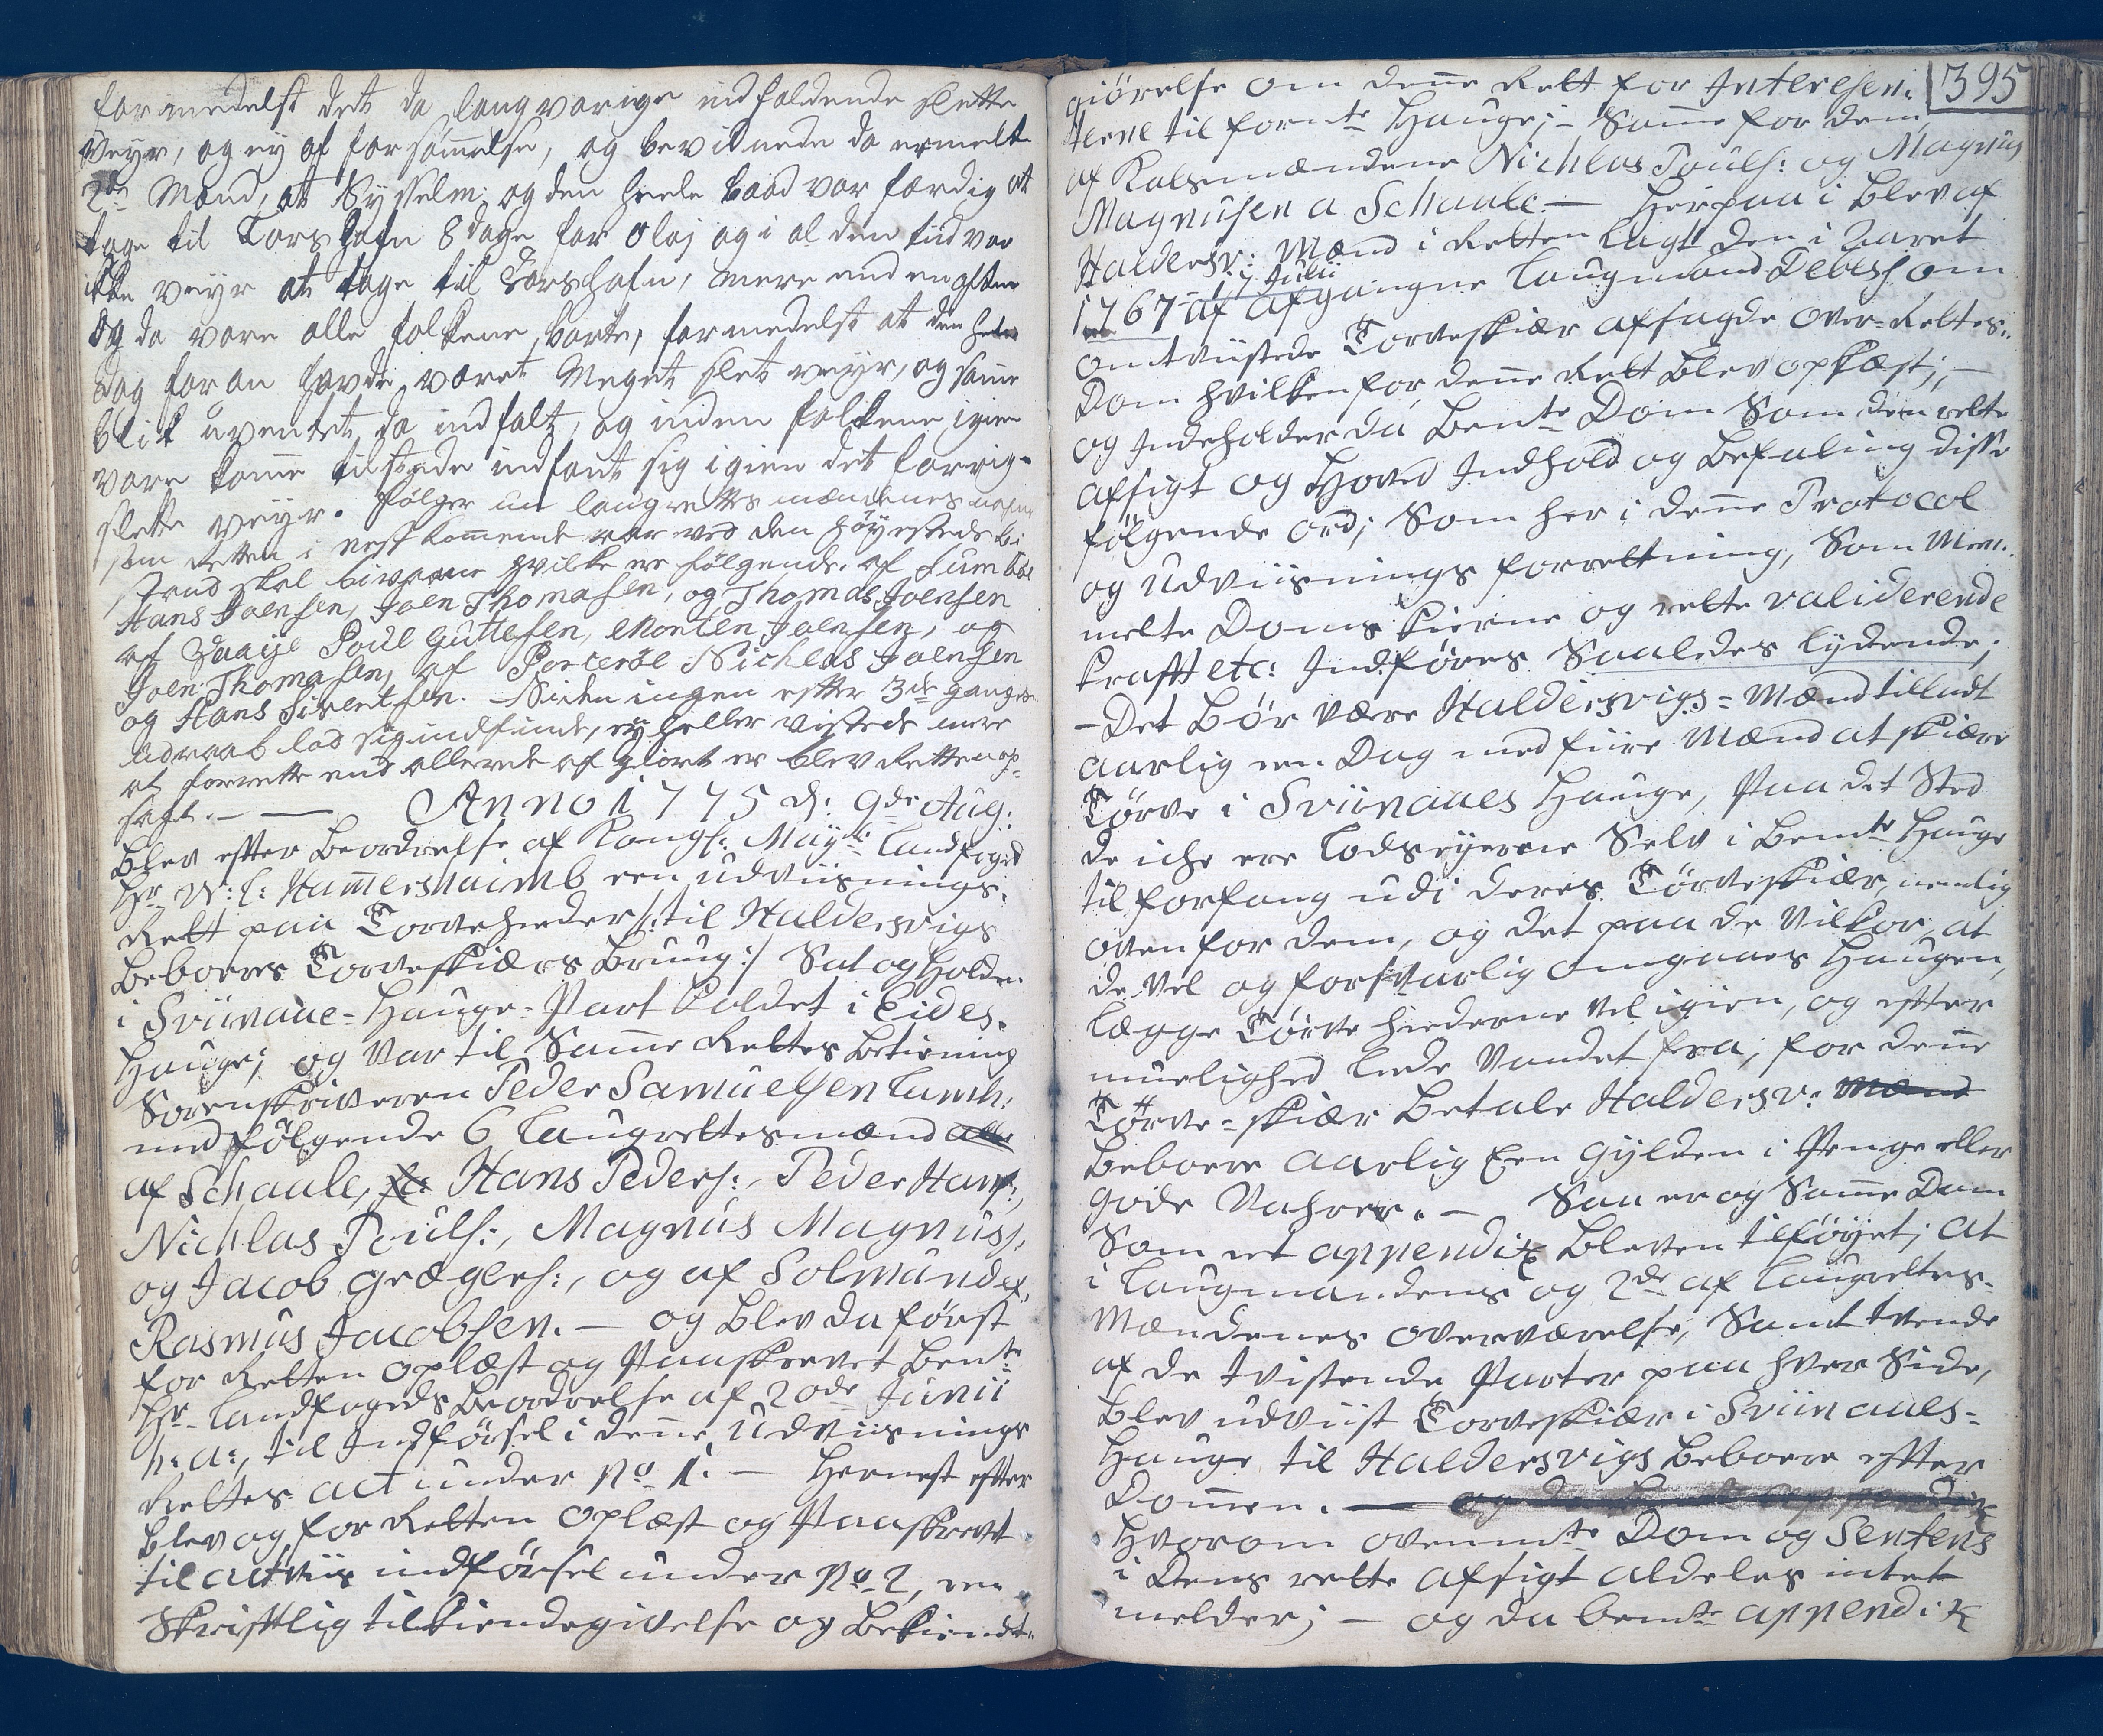 formedelst det da langvarige indfaldende slette
Veyr, og ey af forsømmelse, og bevidnede da ermelte
2de Mænd, at Sysselm: og den heele baad var færdig at
tage til Torshafn 8 dage for Olaj og i al den tiid var
ikke veyr at tage til Torshafn, mere end en aften
og da vare alle folkene borte, formedelst at den hele
dag for an havde været Meget slet veyr, og samme
blik uventet da indfalt, og inden folkene igien
vare komne tilstæde indfant sig igien det forrige
slette veyr. Følger nu laugrettes mændenes nafne
som Retten i nestkommende aar ved den høyesteds bi
stand skal bivaane hvilke er følgende. af Sumbøe
Hans Joensen, Joen Thomasen, og Thomas Joensen
af Vaaije Poul Guttesen, Morten Joensen, og
Joen Thomasen, af Porcerøe Nichlas Joensen
og Hans Sivertsen. Siden ingen efter 3de ganges
Udraab lod sig indfinde, ey heller vistede mere
at forrette end allerede af giort er blev Retten op-
sagt. — — Anno 1775 d: 9de Aug:
blev efter Beordrelse af Kongl: Mayts: Landfoged
Hr W: L: Hammershaimb een udviisnings-
Rett paa Torveheeder /: til Haldersvigs
Beboeres Torveskiærs Bruug :/ Sat og Holden
i Sviinaae-Hauge-Part kaldet i Eides-
Hauge; og var til Samme Rettes Betiening
Sorenskriveren Peder Samuelsen Lamh:
med følgende 6 Laugrettesmænd
af Schaale, Hans Peders:, Peder Hans:,
Nichlas Pouls:, Magnus Magnuss,
og Jacob Grægers:, og af Solmunde,
Rasmus Jacobsen. — og blev da først
for Retten oplæst og Paaskrevet Bente
Hr Landfogeds Beordrelse af 20de Junii
h: a:, til Indførsel i denne Udviisnings
Rettes act under No 1. — Hernest efter
blev og for Retten oplæst og Paaskrevet
til indførsel under No 2, een
Skriftlig tilkiendegivelse og Bekiendt-
395
giørelse om denne Rett for Interesen:
terne til fornte Hauge; — Samme for dem
af Kalsmændene Nichlas Pouls: og Magnus
Magnusen a Schaale. — Herpaa i blev af
Haldersv: Mænd i Retten lagt den i aaret
1767 - 17 Julii af afgangne Laugmand Debess om
omtvistede Torveskiær afsagde Over-Rettes:
Dom hvilken for denne Rett blev oplæst; —
og Indeholder da Bente Dom Som den rette
afsigt og Hoved Indhold og Befaling disse
følgende ord; Som her i denne Protocol
og udviisnings forrettning, Som Mem:
melte Doms kierne og rette validerende
krafft etc: Indføres Saaledes lydende;
- Det bør være Haldersvigs-Mænd tilladt
aarlig een Dag med fiire Mænd at skiære
Tørve i Sviinaaes Hauge, Paa det Sted
de iche ere Lodseyerne Selv i Bemte Hauge
til forfang udi deres Tørveskiær, nemlig
oven for dem, og det paa de Vilkor, at
de vel og forsvarlig omgaaes Haugen,
Lægge Tørve hiederne vel igien, og efter
muelighed Leede Vandet fra, for denne
Tørve-skiær Betale Haldersv: Mænd
beboere aarlig Een Gylden i Penge eller
gode Vahrer. — Saa er og Samme Dom
Som et appendix bleven tilføyet; at
i Laugmandens og 2de af Laugrettes-
Mændenes overværelse, Samt tvende
af de tvistende Parter paa hver Side,
blev udviist Torveskiær i Sviinaaes-
Hauge til Haldersvigs beboere efter
Dommen. — og da bemte appendix
Hvorom ovennte Dom og Sentens
i Dens rette afsigt aldeles intet
melder; — og da bemte appendix